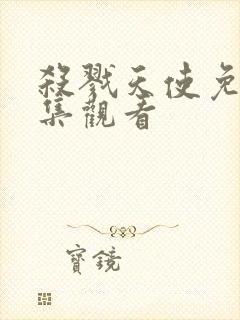 殺戮天使免
集觀看
寶鏡